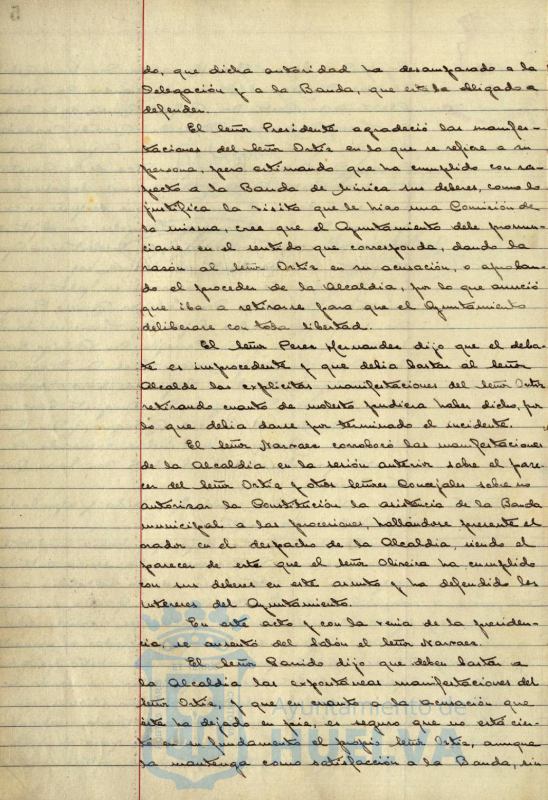 do, que dicha autoridad ha desamparado a la
Delegación y a la Banda, que está obligado a
defender.
El Señor Presidente agradeció las manifes-
taciones del Señor Ortiz en lo que se refiere a su
persona, pero estimando que ha cumplido con res-
pecto a la Banda de Música sus deberes, como lo
justifica la visita que le hizo una Comisión de
la misma, cree que el Ayuntamiento debe pronun-
ciarse en el sentido que corresponda, dando la
razón al Señor Ortiz en su acusación, o aproban-
do el proceder de la Alcaldía, por lo que anunció
que iba a retirarse para que el Ayuntamiento
deliberase con toda libertad.
El Señor Perez Hernandez dijo que el deba-
te es improcedente y que debía bastar al Señor
Alcalde las explícitas manifestaciones del Señor Ortiz
retirando cuanto de molesto pudiera haber dicho, por
lo que debía darse por terminado el incidente.
El Señor Narvaez corroboró las manifestaciones
de la Alcaldía en la sesión anterior sobre el pare-
cer del Señor Ortiz y otros Señores Concejales sobre no
autorizar la Constitución la asistencia de la Banda
municipal a las procesiones, hallándose presente el
orador en el despacho de la Alcaldía, siendo el
parecer de este que el Señor Oliveira ha cumplido
con sus deberes en este asunto y ha defendido los
intereses del Ayuntamiento.
En este acto y con la venia de la presiden-
cia, se ausentó del Salón el Señor Narvaez.
El Señor Garrido dijo que deben bastar a
la Alcaldía las expontáneas manifestaciones del
Señor Ortiz, y que en cuanto a la acusación que
éste ha dejado en pie, es seguro que no está cier-
to en su fundamento el propio Señor Ortiz, aunque
la mantenga como satisfacción a la Banda, sin
Ayuntamiento de
HUELVA